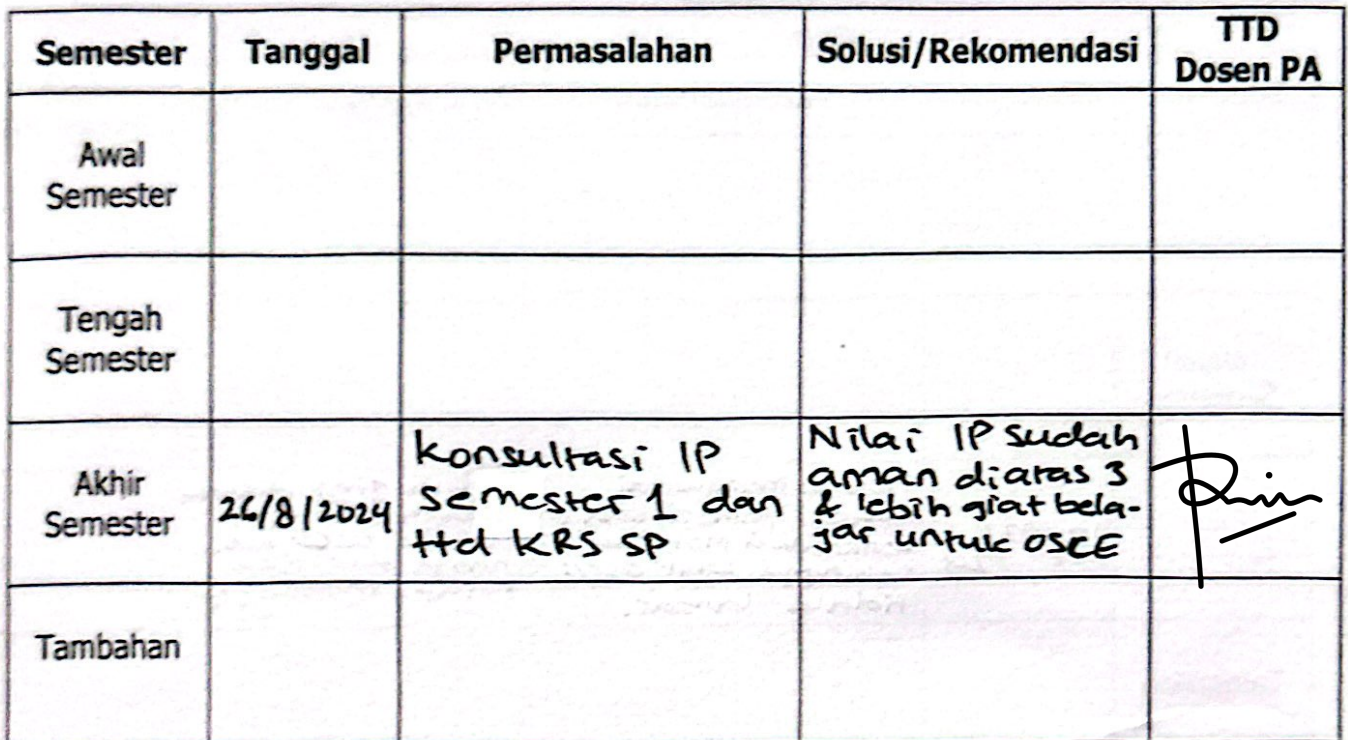 Semester Tanggal Permasalahan Solusi/Rekomendasi TTD
Dosen PA
Awal
Semester
Tengah
Semester
Akhir
Semester
26/8/2024
Konsultasi IP
semester 1 dan
ttd KRS SP
Nilai IP sudah
aman diatas 3
& lebih giat bela-
jar untuk OSCE
Tambahan